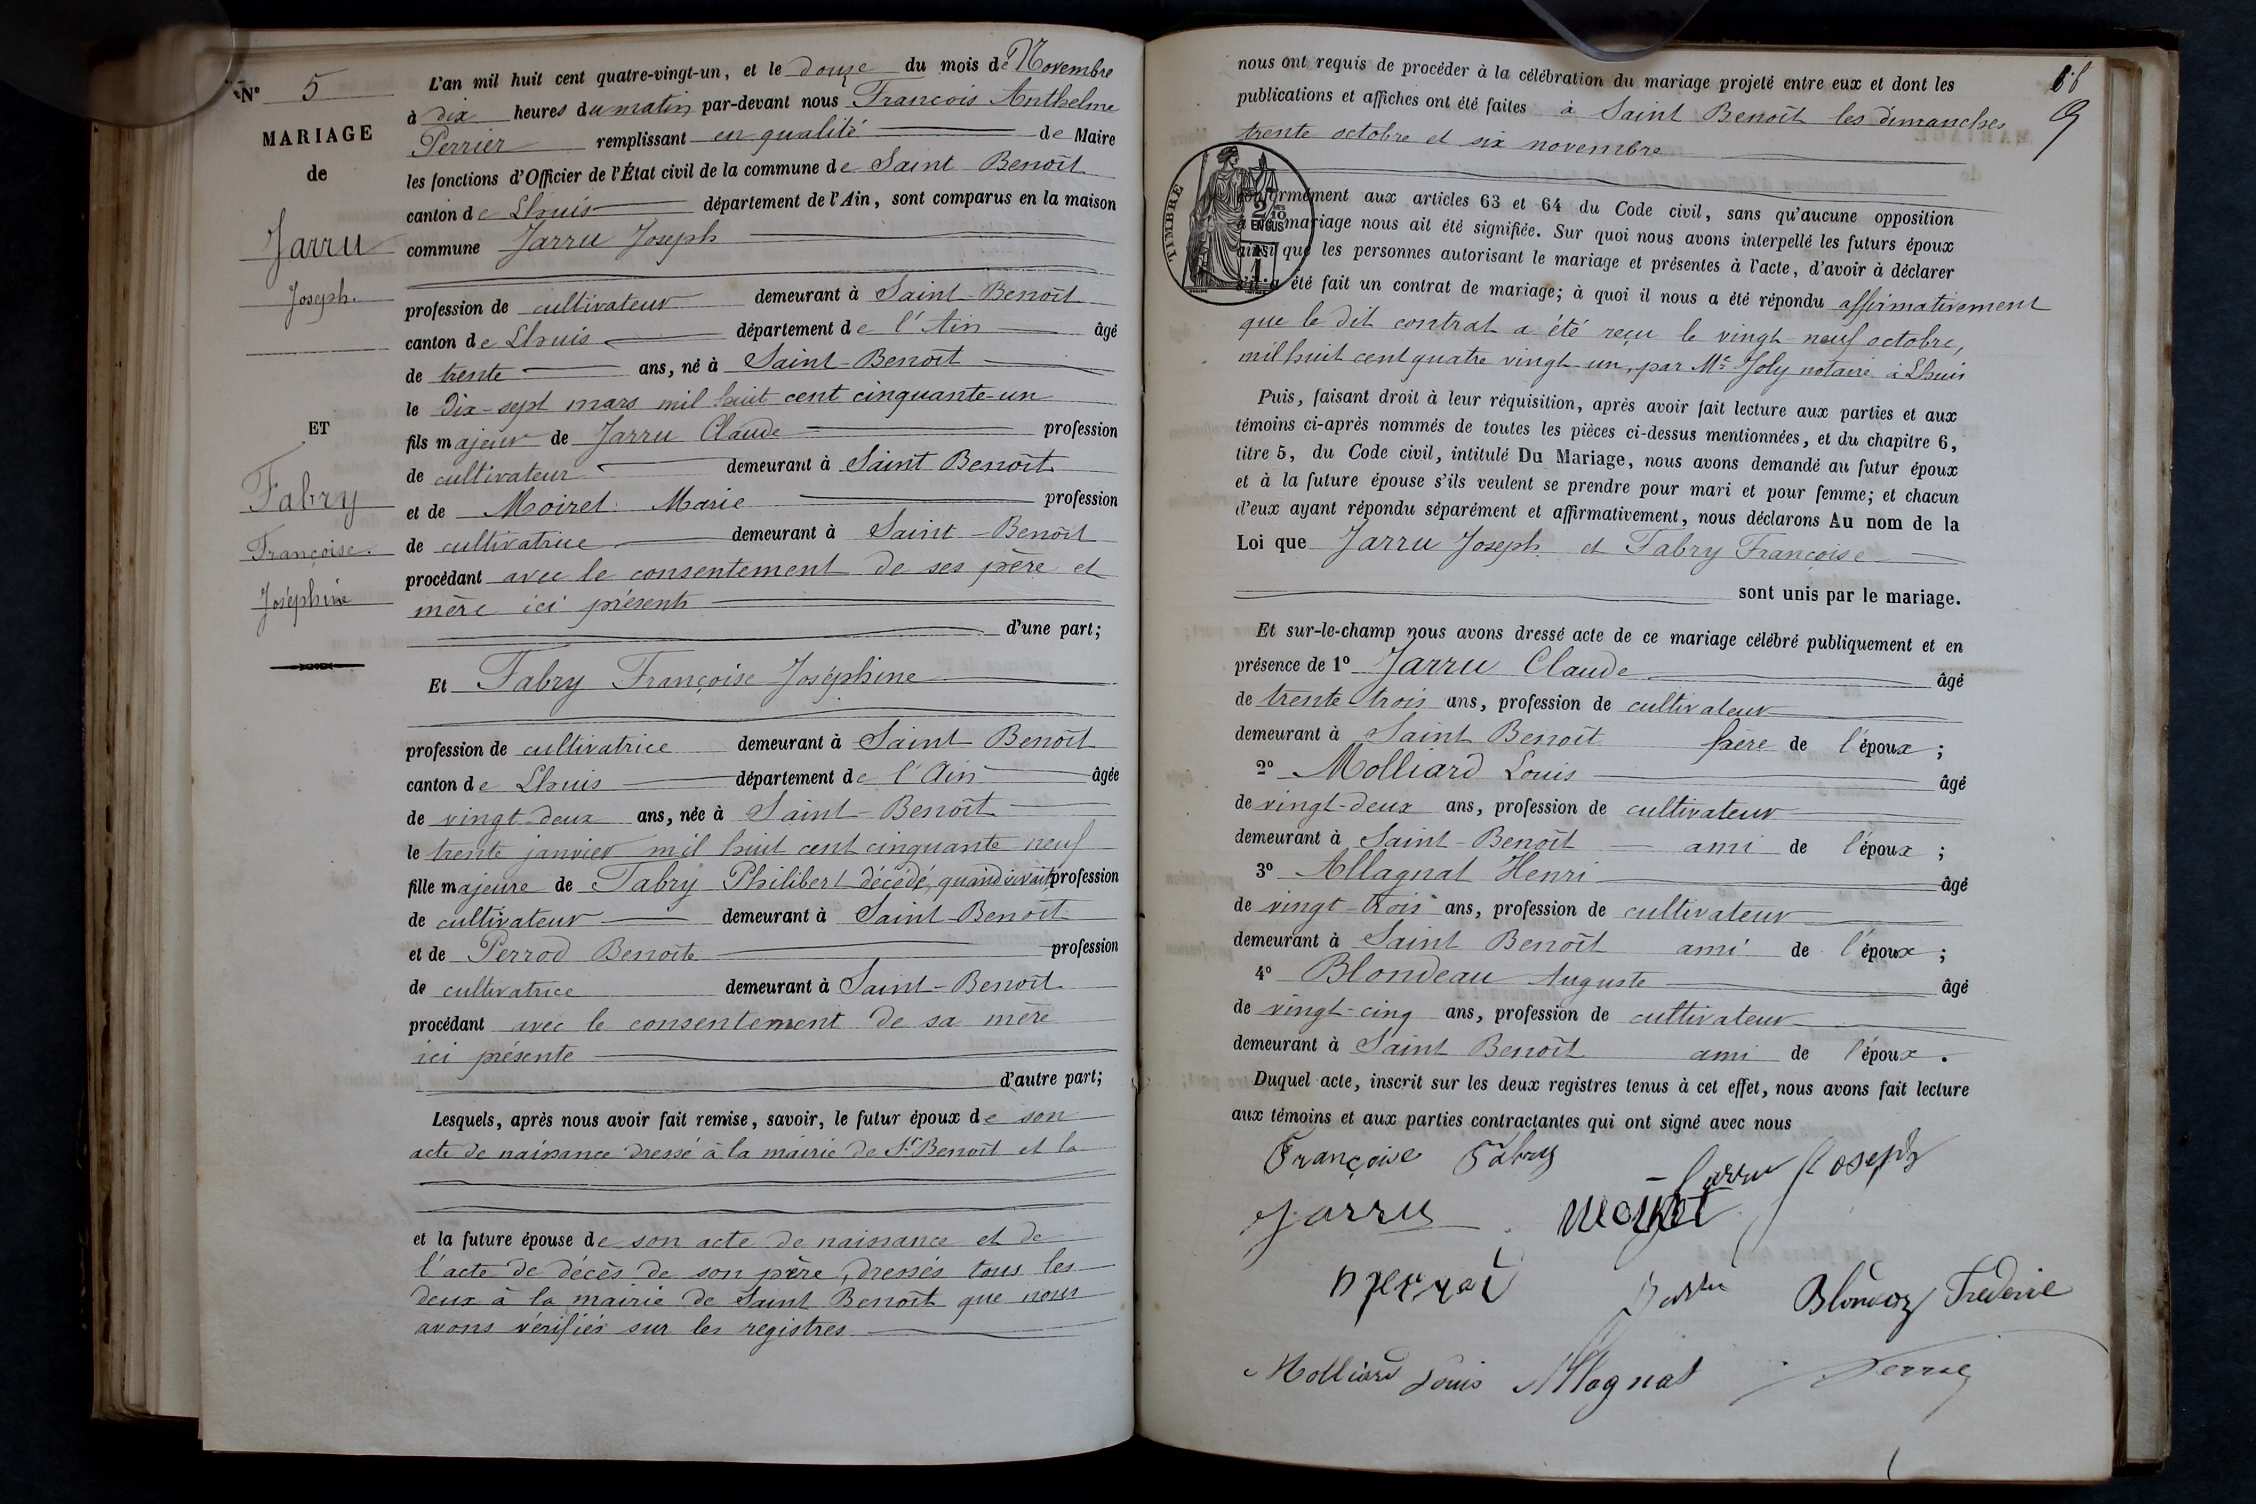 N° 5
MARIAGE
de
Jarru
Joseph.
ET
Fabry
Françoise.
Joséphine
L'an mil huit cent quatre-vingt-un, et le douze du mois de Novembre
à dix heures du matin par-devant nous François Anthelme
Perrier remplissant en qualité de Maire
les fonctions d'Officier de l'État civil de la commune de Saint Benoît
canton de Lhuis département de l'Ain, sont comparus en la maison
commune Jarru Joseph
profession de cultivateur demeurant à Saint-Benoît
canton de Lhuis département de l'Ain âgé
de trente ans, né à Saint-Benoît
le dix-sept mars mil huit cent cinquante-un
fils majeur de Jarru Claude profession
de cultivateur demeurant à Saint Benoît
et de Moiret Marie profession
de cultivatrice demeurant à Saint-Benoît
procédant avec le consentement de ses père et
mère ici présents
d'une part;
Et Fabry Françoise Joséphine
profession de cultivatrice demeurant à Saint Benoît
canton de Lhuis département de l'Ain âgée
de vingt-deux ans, née à Saint-Benoît
le trente janvier mil huit cent cinquante neuf
fille majeure de Fabry Philibert décédé, quand vivait profession
de cultivateur demeurant à Saint-Benoît
et de Perrod Benoîte profession
de cultivatrice demeurant à Saint-Benoît
procédant avec le consentement de sa mère
ici présente
d'autre part;
Lesquels, après nous avoir fait remise, savoir, le futur époux de son
acte de naissance dressé à la mairie de St Benoît et la
et la future épouse de son acte de naissance et de
l'acte de décès de son père, dressés tous les
deux à la mairie de Saint Benoît que nous
avons vérifiés sur les registres
nous ont requis de procéder à la célébration du mariage projeté entre eux et dont les
publications et affiches ont été faites à Saint Benoît les dimanches
trente octobre et six novembre
TIMBRE
2/10 EN SUS
conformément aux articles 63 et 64 du Code civil, sans qu'aucune opposition
à ce mariage nous ait été signifiée. Sur quoi nous avons interpellé les futurs époux
ainsi que les personnes autorisant le mariage et présentes à l'acte, d'avoir à déclarer
s'il a été fait un contrat de mariage; à quoi il nous a été répondu affirmativement
que le dit contrat a été reçu le vingt-neuf octobre,
mil huit cent quatre vingt-un, par Me Joly notaire à Lhuis
Puis, faisant droit à leur réquisition, après avoir fait lecture aux parties et aux
témoins ci-après nommés de toutes les pièces ci-dessus mentionnées, et du chapitre 6,
titre 5, du Code civil, intitulé Du Mariage, nous avons demandé au futur époux
et à la future épouse s'ils veulent se prendre pour mari et pour femme; et chacun
d'eux ayant répondu séparément et affirmativement, nous déclarons Au nom de la
Loi que Jarru Joseph et Fabry Françoise
sont unis par le mariage.
Et sur-le-champ nous avons dressé acte de ce mariage célébré publiquement et en
présence de 1° Jarru Claude âgé
de trente trois ans, profession de cultivateur
demeurant à Saint Benoît frère de l'époux;
2° Molliard Louis âgé
de vingt-deux ans, profession de cultivateur
demeurant à Saint-Benoît ami de l'époux;
3° Allagnat Henri âgé
de vingt-trois ans, profession de cultivateur
demeurant à Saint Benoît ami de l'époux;
4° Blondeau Auguste âgé
de vingt-cinq ans, profession de cultivateur
demeurant à Saint Benoît ami de l'époux.
Duquel acte, inscrit sur les deux registres tenus à cet effet, nous avons fait lecture
aux témoins et aux parties contractantes qui ont signé avec nous
Françoise Fabry Jarru Joseph
Jarru Moiret
Blondeau Frederic
Molliard Louis Allagnat Perrier